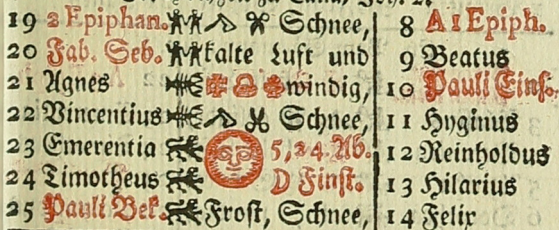 19 2 Epiphan. Schnee, 8 A 1 Epiph.
20 Fab. Seb. kalte Luft und 9 Beatus
21 Agnes windig, 10 Pauli Eins.
22 Vincentius Schnee, 11 Hyginus
23 Emerentia 5, 24 Ab. 12 Reinholdus
24 Timotheus D Finst. 13 Hilarius
25 Pauli Bek. Frost, Schnee, 14 Felix